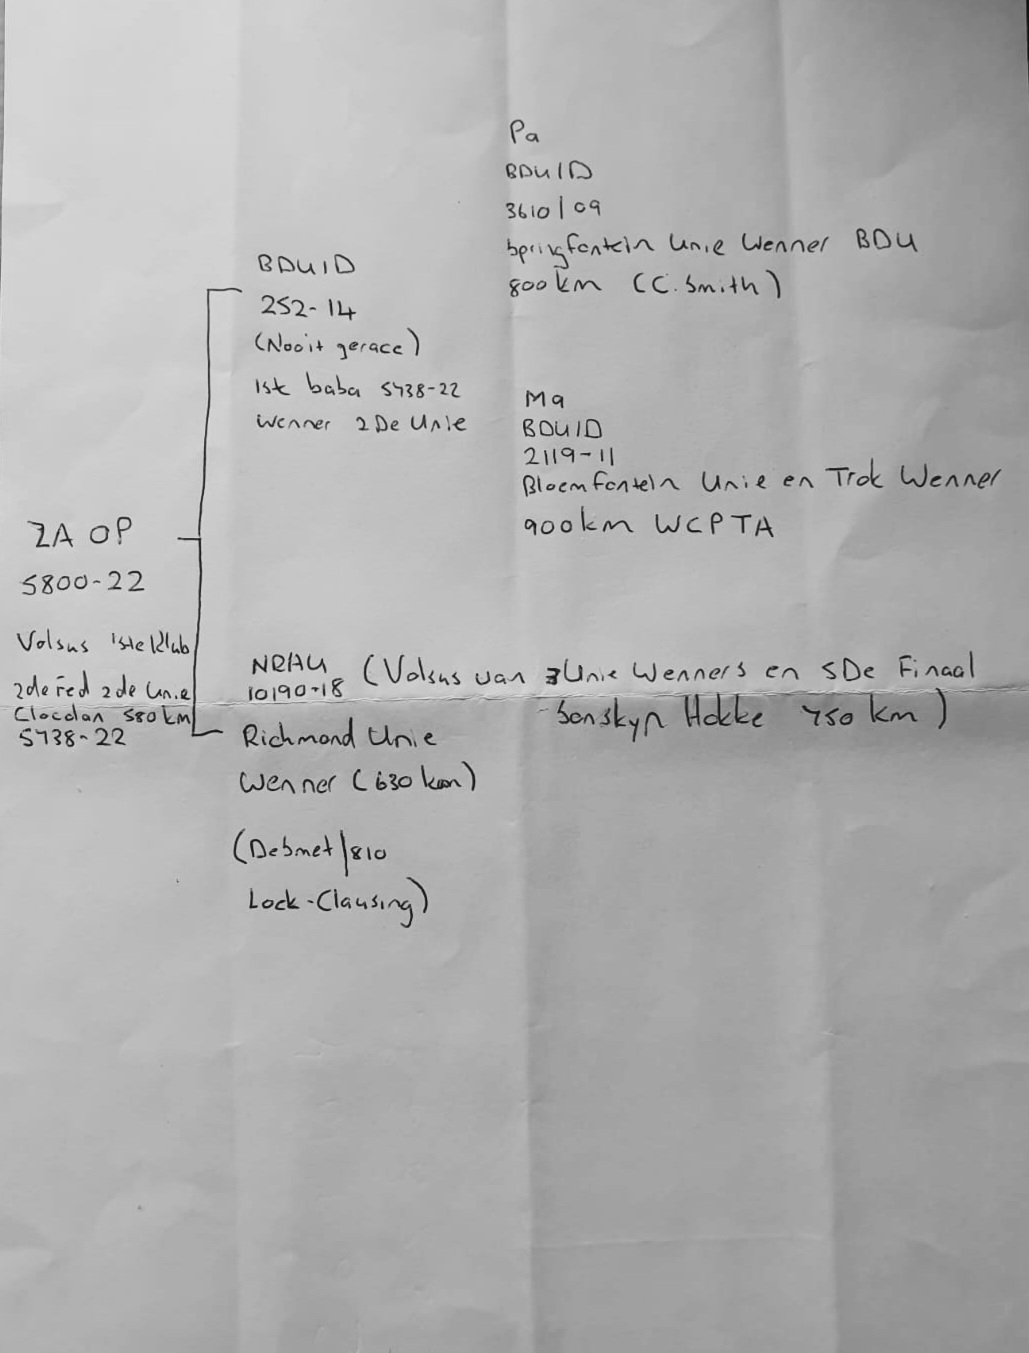 Pa
BDUID
3610/09
Springfontein Unie Wenner BDU
800km (C. Smith)
BDUID
252-14
(Nooit gerace)
1ste baba 5738-22
Wenner 2De Unie
Ma
BDUID
2119-11
Bloemfontein Unie en Trok Wenner
900km WCPTA
ZA OP
5800-22
Volsus 1ste klub
2de fed 2de Unie
580 km
5738-22
NRHU (Volsus van 3 Unie Wenners en 5De Finaal
10190-18
Sonskyn Hokke 750 km)
Richmond Unie
Wenner (630 km)
(Debmet/810
Lock-Clausing)